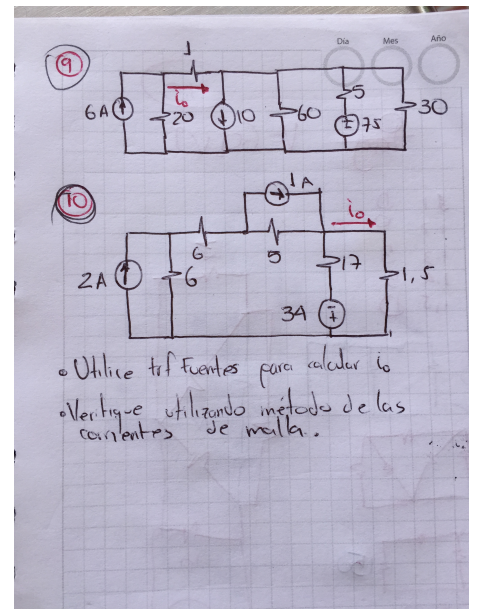 Día Mes Año
9
1
6A 20 io 10 60 5 75 30
10
1A
io
6 5
2A 6 17 1,5
3A
• Utilice trf Fuentes para calcular io
• Verifique utilizando método de las
corrientes de malla.